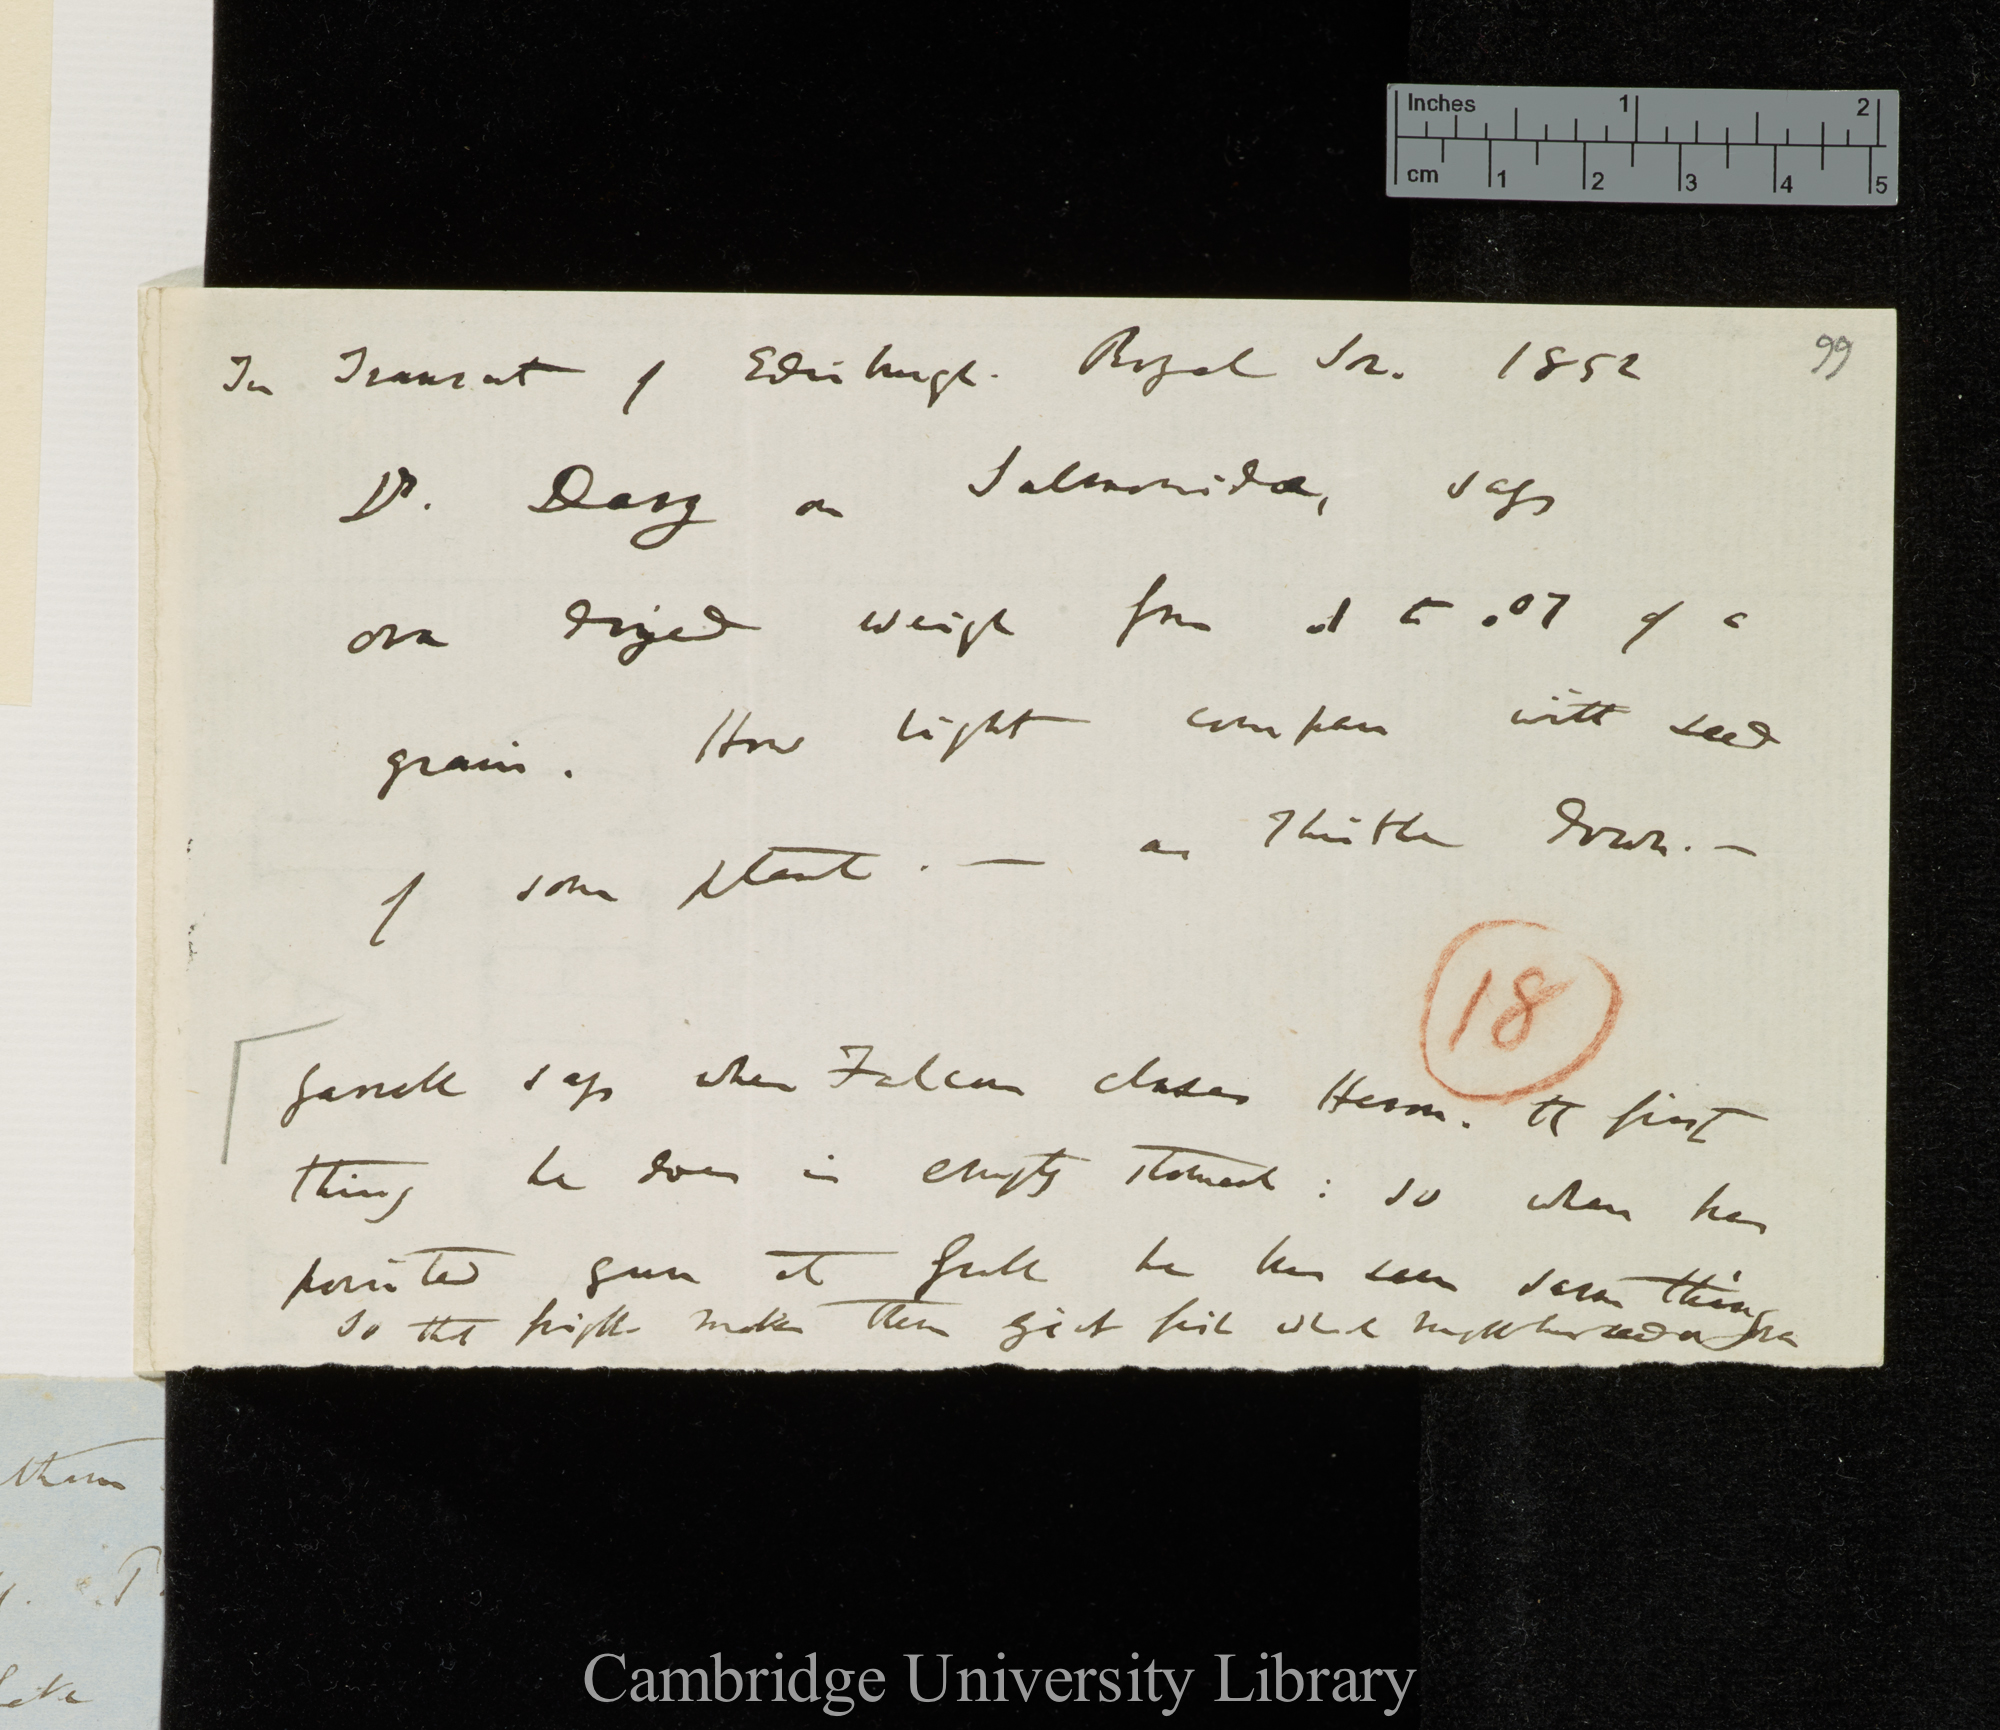 Inches 1 2
cm 1 2 3 4 5
99
In Transact of Edinburgh. Royal Soc. 1852
Dr. Davy on Salmonidæ, says
ova dried weigh from .1 to .07 of a
grain. How light compare with seed
of some plant. — as Thistle down. —
18
says when Falcon chases Heron. the first
thing he does is empty stomach : so when has
pointed gun at Gull he has seen same thing
So that fright makes them eject fish which might have seed or ova
them
Cambridge University Library